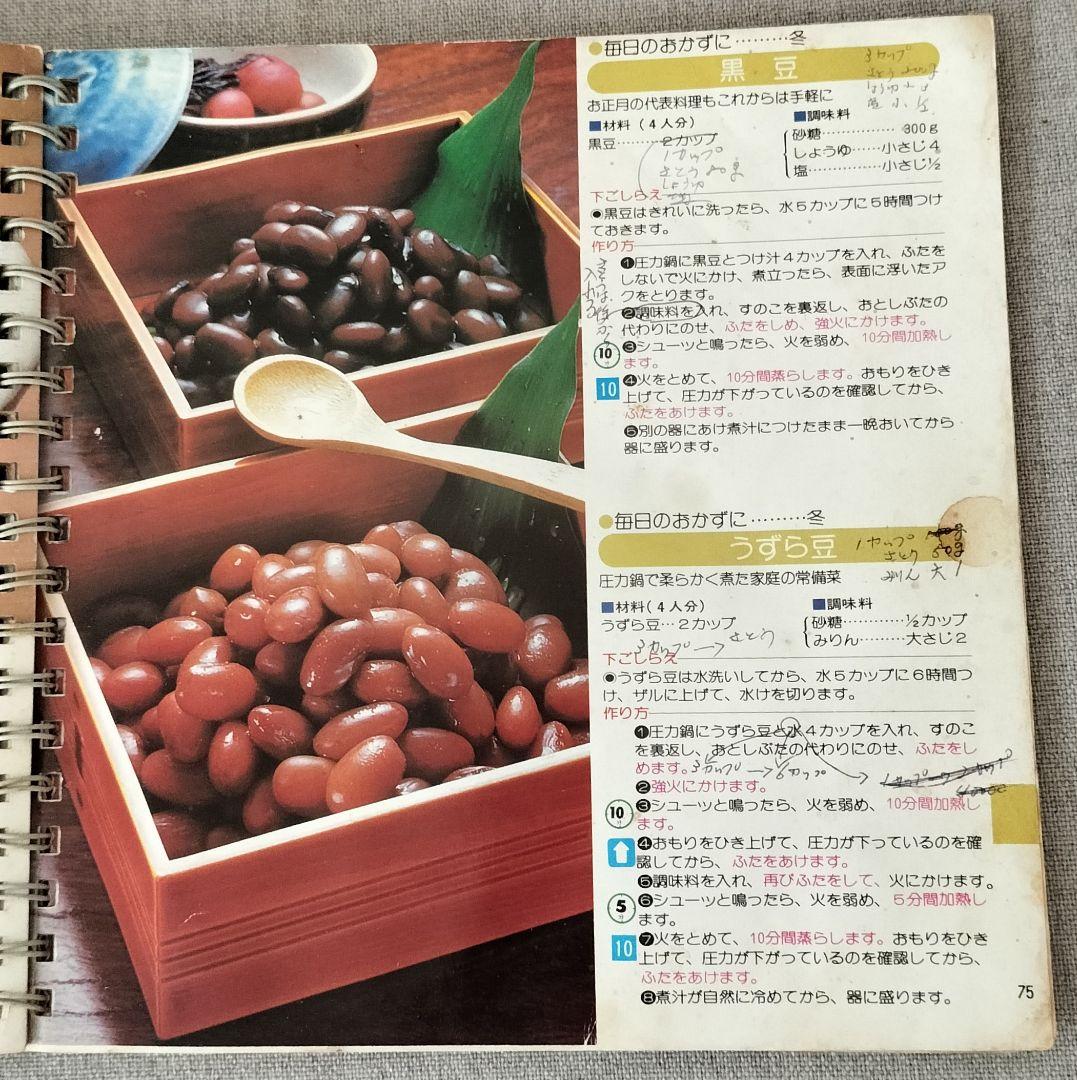 ●毎日のおかずに………冬
黒豆
3カップ
お正月の代表料理もこれからは手軽に
■材料(4人分)
黒豆………2カップ
1カップ
■調味料
砂糖……………300g
しょうゆ……小さじ4
塩……………小さじ½
下ごしらえ
●黒豆はきれいに洗ったら、水5カップに5時間つけ
ておきます。
作り方
❶圧力鍋に黒豆とつけ汁4カップを入れ、ふたを
しないで火にかけ、煮立ったら、表面に浮いたア
クをとります。
❷調味料を入れ、すのこを裏返し、おとしぶたの
代わりにのせ、ふたをしめ、強火にかけます。
10分
❸シューッと鳴ったら、火を弱め、10分間加熱し
ます。
10
❹火をとめて、10分間蒸らします。おもりをひき
上げて、圧力が下がっているのを確認してから、
ふたをあけます。
❺別の器にあけ煮汁につけたまま一晩おいてから
器に盛ります。
●毎日のおかずに………冬
うずら豆
1カップ
さとう 50g
みりん 大1
圧力鍋で柔らかく煮た家庭の常備菜
■材料(4人分)
うずら豆…2カップ
3カップ→ さとう
■調味料
砂糖………½カップ
みりん………大さじ2
下ごしらえ
●うずら豆は水洗いしてから、水5カップに6時間つ
け、ザルに上げて、水けを切ります。
作り方
❶圧力鍋にうずら豆と水4カップを入れ、すのこ
を裏返し、おとしぶたの代わりにのせ、ふたをし
めます。
3カップ→6カップ
❷強火にかけます。
10分
❸シューッと鳴ったら、火を弱め、10分間加熱し
ます。
❹おもりをひき上げて、圧力が下っているのを確
認してから、ふたをあけます。
❺調味料を入れ、再びふたをして、火にかけます。
5分
❻シューッと鳴ったら、火を弱め、5分間加熱し
ます。
10
❼火をとめて、10分間蒸らします。おもりをひき
上げて、圧力が下がっているのを確認してから、
ふたをあけます。
❽煮汁が自然に冷めてから、器に盛ります。
75